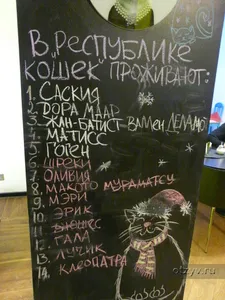 В „РЕСПУБЛИКЕ
КОШЕК" ПРОЖИВАЮТ:
1. САСКИЯ
2. ДОРА МААР
3. ЖАН-БАТИСТ
4. МАТИСС
5. ГОГЕН
6. ШРЕКИ
7. ОЛИВИЯ
8. МАКОТО МУРАМАТСУ
9. МЭРИ
10. ЭРИК
11.
12. ГАЛА
13. ЛУЧИК
14. КЛЕОПАТРА
otzyv.ru